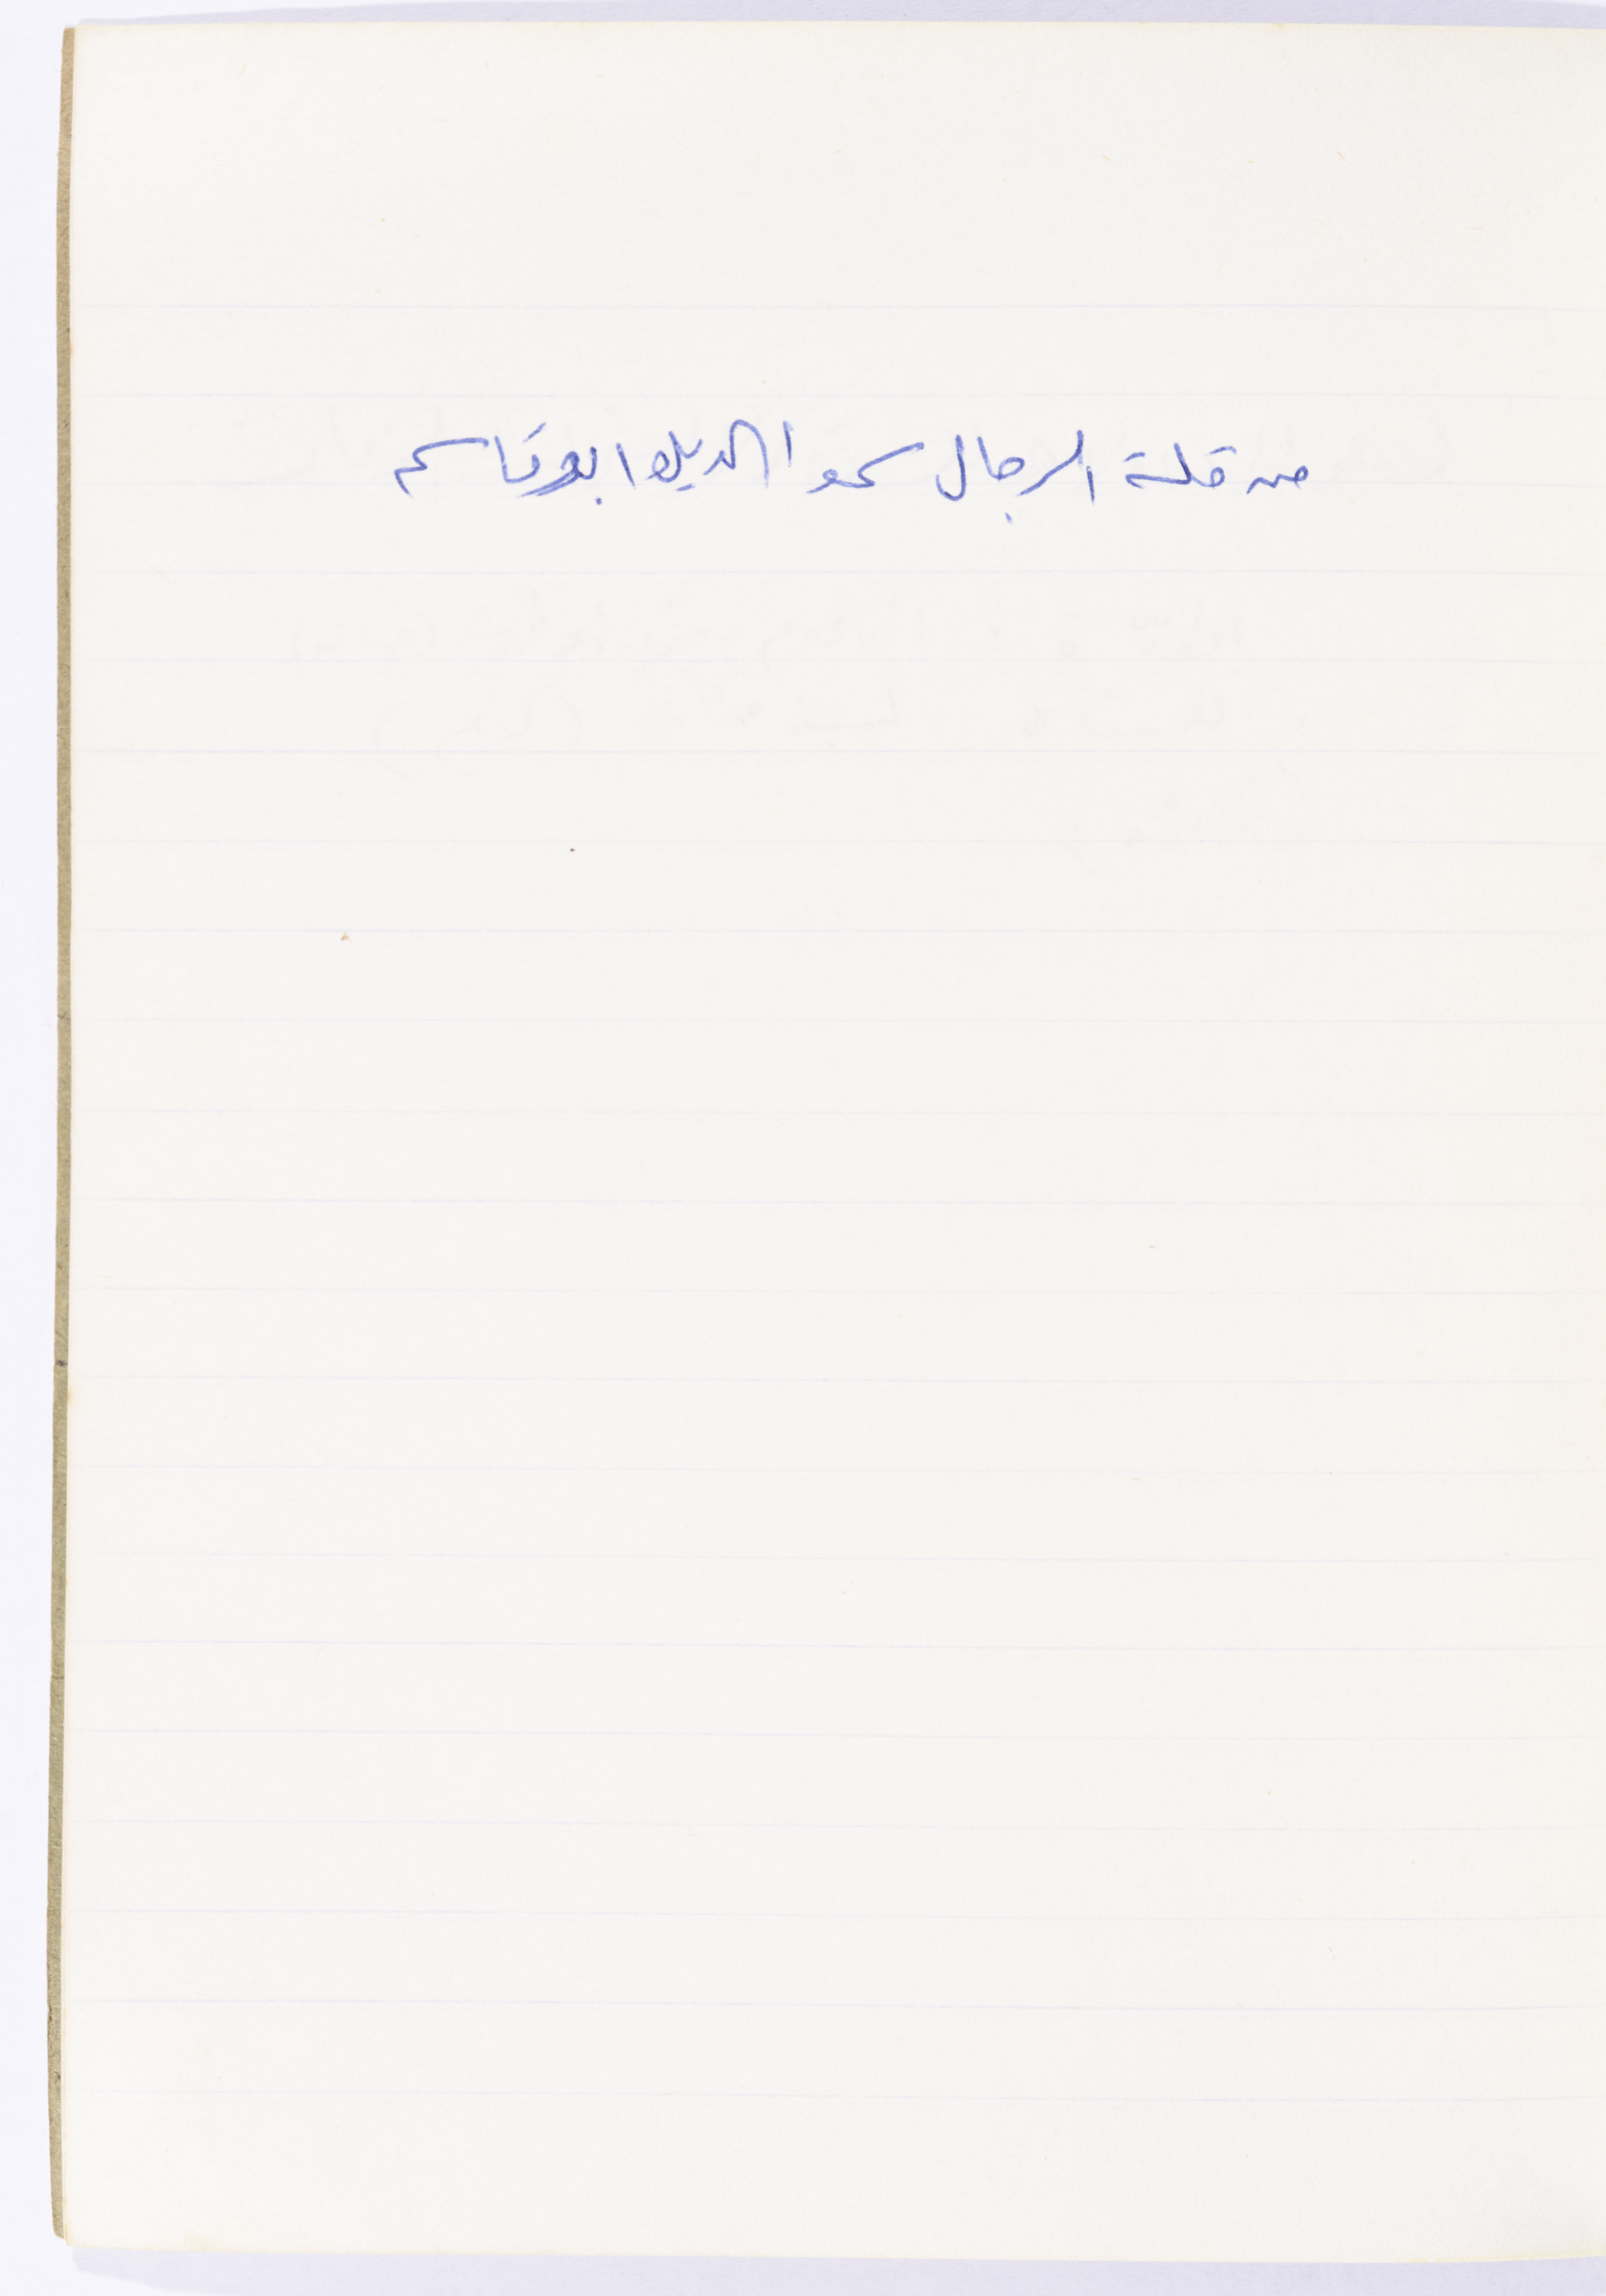 من قلة الرجال سموا الديك ابو قاسم